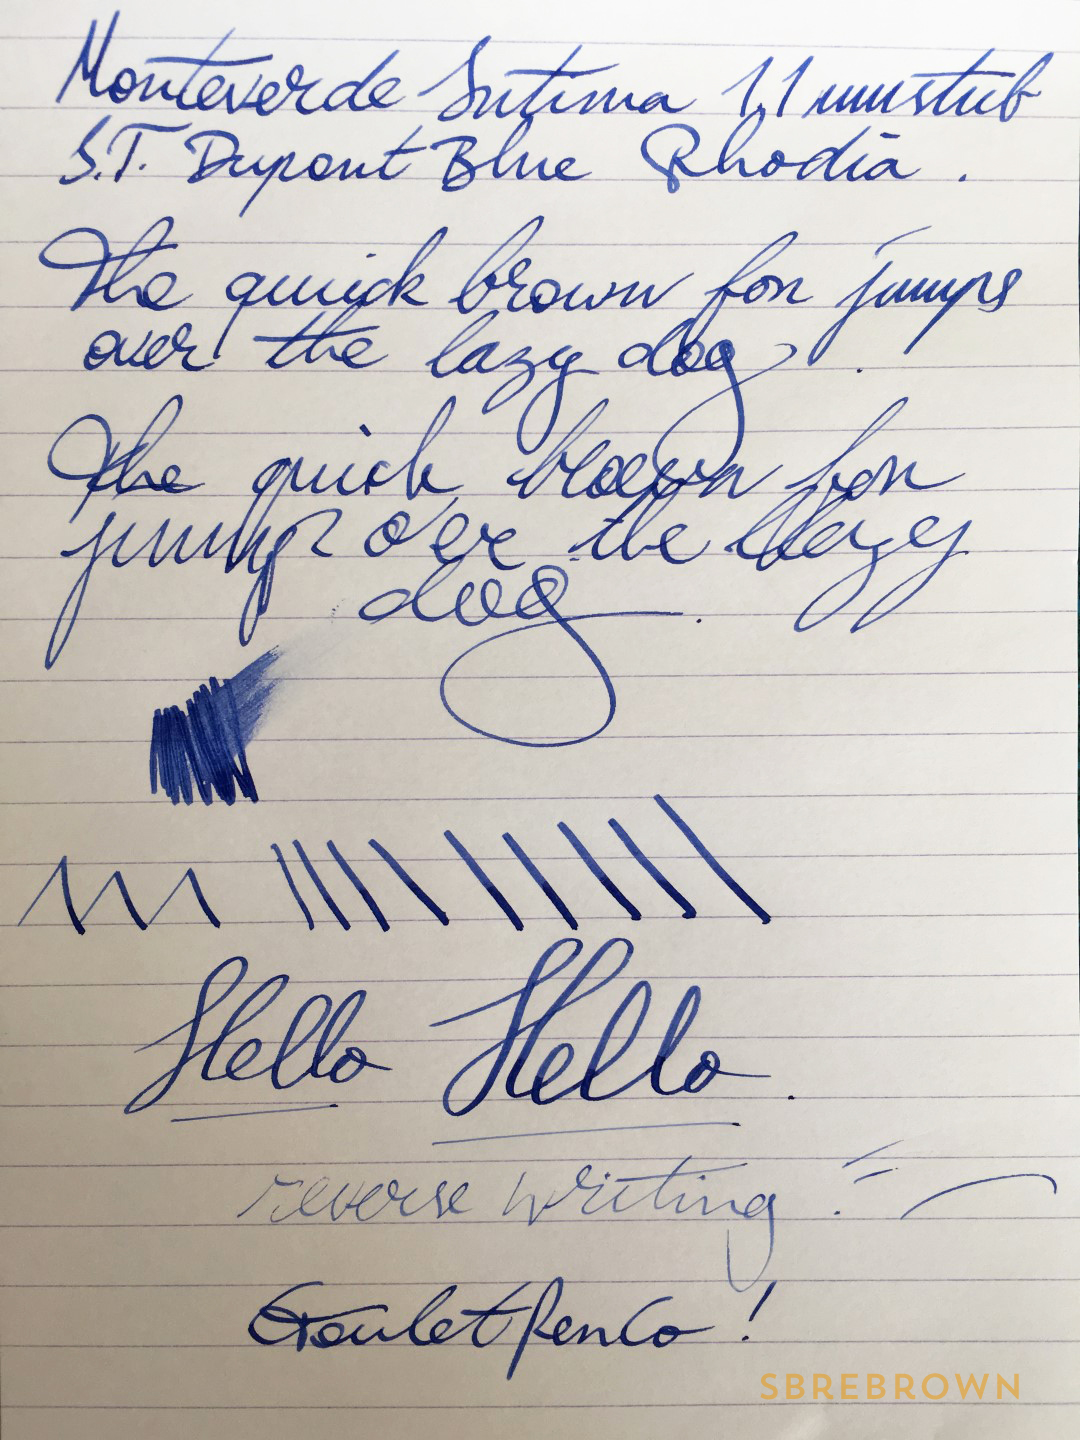 Monteverde Intima 1.1 mm stub
S.T. Dupont Blue Rhodia .
The quick brown fox jumps
over the lazy dog .
The quick brown fox
jumps over the lazy
dog .
Hello Hello .
reverse writing :
GouletPenCo !
SBREBROWN